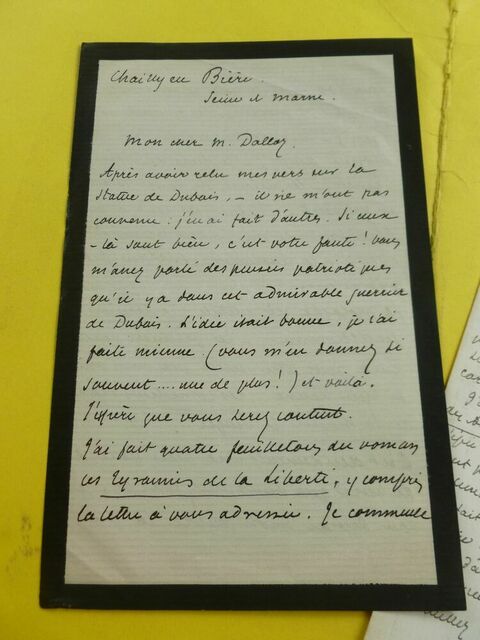 Chailly en Bière.
Seine et Marne.
Mon cher M. Dalloz.
Après avoir relu mes vers sur la
statue de Dubois, – ils ne m'ont pas
convenu : j'en ai fait d'autres. Si ceux
-là sont bien, c'est votre faute ! Vous
m'avez parlé des pensées patriotiques
qu'il y a dans cet admirable guerrier
de Dubois. L'idée était bonne, je l'ai
faite mienne (vous m'en donnez si
souvent .... une de plus !) et voilà.
J'espère que vous serez content.
J'ai fait quatre feuilletons du roman
les Tyrannies de la Liberté, y compris
la lettre à vous adressée. Je commence